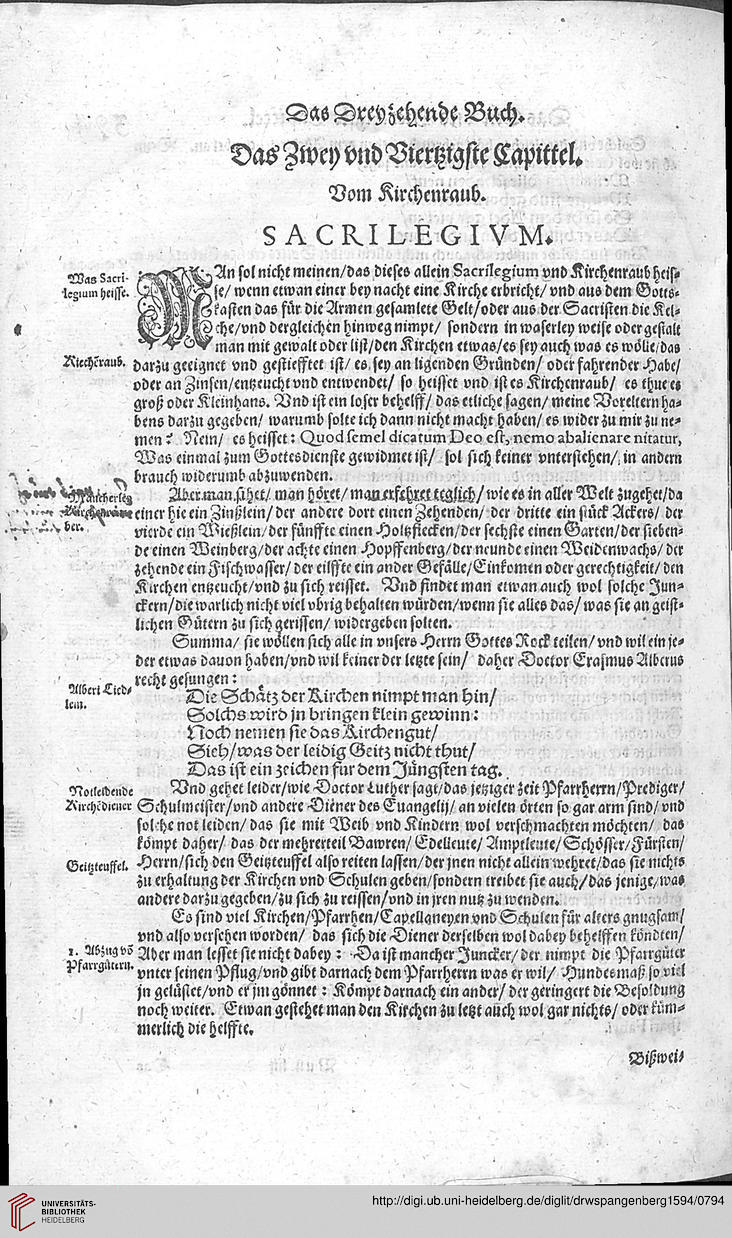 Das Dreyzehende Buch.
Das Zwey vnd Viertzigste Capittel.
Vom Kirchenraub.
SACRILEGIVM.
Was Sacri-
legium heisse.
MAn sol nicht meinen/das dieses allein Sacrilegium vnd Kirchenraub heis-
se/ wenn etwan einer bey nacht eine Kirche erbricht/ vnd aus dem Gotts-
kasten das für die Armen gesamlete Gelt/oder aus der Sacristen die Kel-
che/vnd dergleichen hinweg nimpt/ sondern in waserley weise oder gestalt
man mit gewalt oder list/den Kirchen etwas/es sey auch was es wölle/das
Kirchēraub.
darzu geeignet vnd gestiefftet ist/ es sey an ligenden Gründen/ oder fahrender Habe/
oder an Zinsen/entzeucht vnd entwendet/ so heisset vnd ist es Kirchenraub/ es thue es
groß oder Kleinhans. Vnd ist ein loser behelff/ das etliche sagen/ meine Voreltern ha-
bens darzu gegeben/ warumb solte ich dann nicht macht haben/ es wider zu mir zu ne-
men? Nein/ es heisset: Quod semel dicatum Deo est, nemo abalienare nitatur,
Was einmal zum Gottesdienste gewidmet ist/ sol sich keiner vnterstehen/ in andern
brauch widerumb abzuwenden.
Mancherley
Kirchenräu-
ber.
Aber man sihet/ man höret/ man erfehret teglich/ wie es in aller Welt zugehet/da
einer hie ein Zinßlein/ der andere dort einen Zehenden/ der dritte ein stück Ackers/ der
vierde ein Wießlein/ der fünffte einen Holtzflecken/der sechste einen Garten/der sieben-
de einen Weinberg/der achte einen Hopffenberg/der neunde einen Weidenwachs/ der
zehende ein Fischwasser/ der eilffte ein ander Gefälle/Einkomen oder gerechtigkeit/ den
Kirchen entzeucht/vnd zu sich reisset. Vnd findet man etwan auch wol solche Jun-
ckern/die warlich nicht viel vbrig behalten würden/wenn sie alles das/ was sie an geist-
lichen Gütern zu sich gerissen/ widergeben solten.
Summa/ sie wöllen sich alle in vnsers Herrn Gottes Rock teilen/ vnd wil ein je-
der etwas dauon haben/vnd wil keiner der letzte sein/ daher Doctor Erasmus Alberus
recht gesungen:
Alberi Lied-
lein.
Die Schätz der Kirchen nimpt man hin/
Solchs wird jn bringen klein gewinn:
Noch nemen sie das Kirchengut/
Sieh/was der leidig Geitz nicht thut/
Das ist ein zeichen für dem Jüngsten tag.
Notleidende
Kirchēdiener
Vnd gehet leider/wie Doctor Luther sagt/das jetziger zeit Pfarrherrn/Prediger/
Schulmeister/vnd andere Diener des Euangelij/ an vielen örten so gar arm sind/ vnd
solche not leiden/ das sie mit Weib vnd Kindern wol verschmachten möchten/ das
kömpt daher/ das der mehrerteil Bawren/ Edelleute/ Amptleute/Schösser/Fürsten/
Geitzteuffel.
Herrn/sich den Geitzteuffel also reiten lassen/der jnen nicht allein wehret/das sie nichts
zu erhaltung der Kirchen vnd Schulen geben/sondern treibet sie auch/das jenige/was
andere darzu gegeben/zu sich zu reissen/vnd in jren nutz zu wenden.
Es sind viel Kirchen/Pfarrhen/Capellaneyen vnd Schulen für alters gnugsam/
vnd also versehen worden/ das sich die Diener derselben wol dabey behelffen köndten/
1. Abzug vō
Pfarrgütern.
Aber man lesset sie nicht dabey: Da ist mancher Juncker/ der nimpt die Pfarrgüter
vnter seinen Pflug/vnd gibt darnach dem Pfarrherrn was er wil/ Hundesmaß so viel
jn gelüstet/vnd er jm gönnet: Kömpt darnach ein ander/ der geringert die Besoldung
noch weiter. Etwan gestehet man den Kirchen zu letzt auch wol gar nichts/ oder küm-
merlich die helffte.
Bißwei-
UNIVERSITÄTS-
BIBLIOTHEK
HEIDELBERG
http://digi.ub.uni-heidelberg.de/diglit/drwspangenberg1594/0794